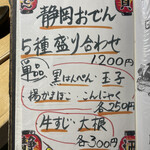 静岡おでん
5種盛り合わせ
1200円
単品
黒はんぺん・玉子
揚かまぼこ・こんにゃく
各250円
牛すじ・大根
各300円